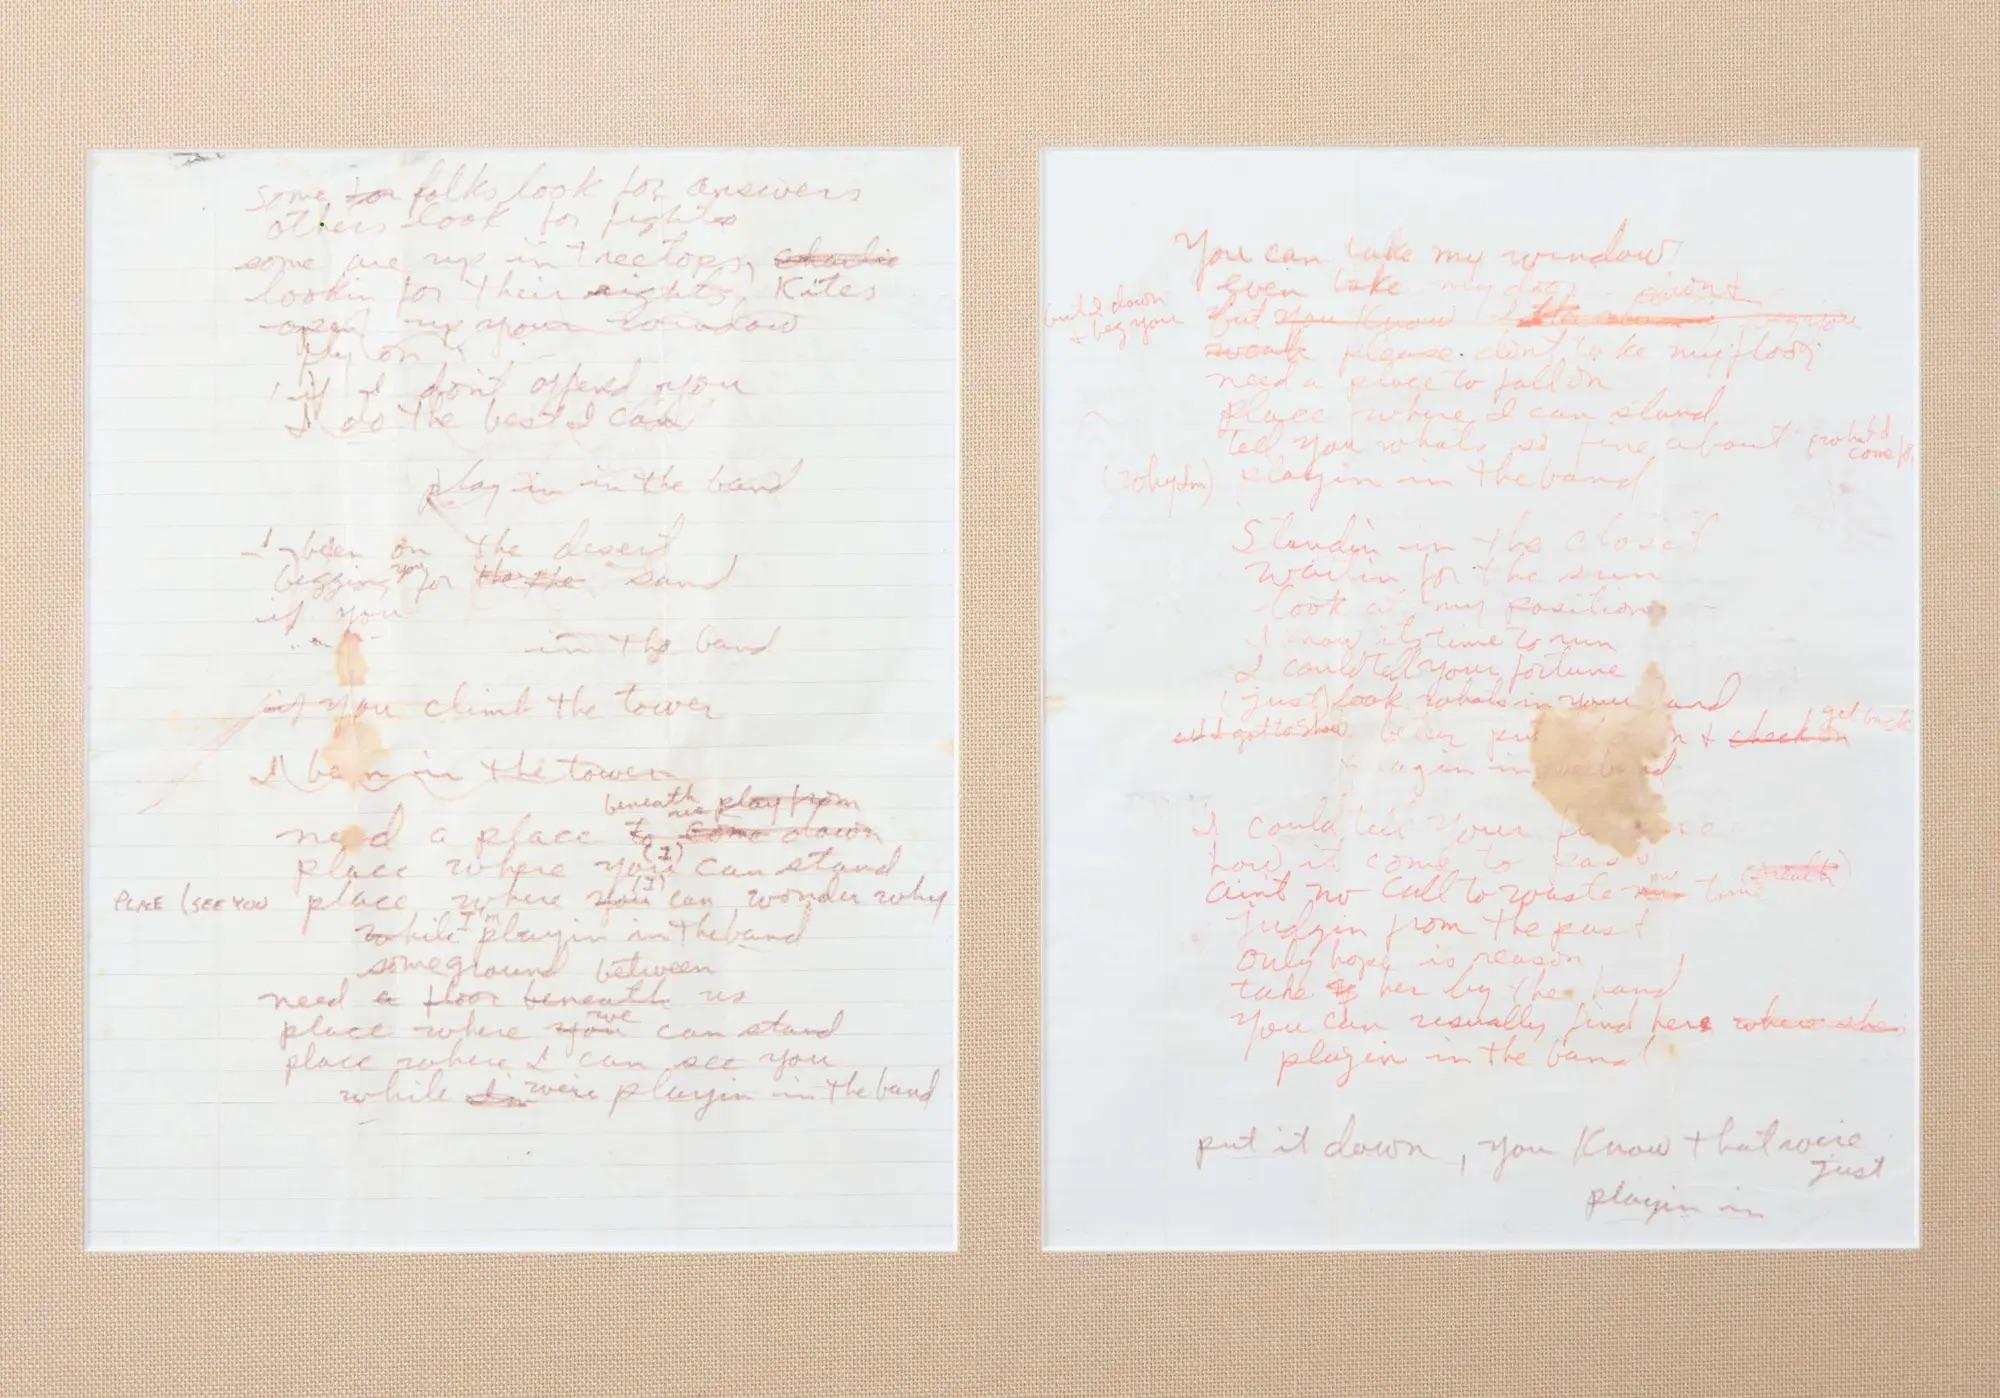 some for folks look for answers
others look for fights
some are up in treetops, charlie
lookin for their rights, Kites
open up your window
fly on
if I don't offend you
I do the best I can
playin in the band
I been on the desert
begging you for the the sand
if you
in the band
if you climb the tower
I been in the tower
beneath us play from
need a place to come down
place where you (I) can stand
PLACE I SEE YOU place where you (I) can wonder why
while I'm playin in the band
someground between
need a floor beneath us
place where you we can stand
place where I can see you
while I'm we're playin in the band
You can take my window
Even take my door
but I down
+ beg you
but you know I
please dont take my floor
need a place to fall on
place where I can stand
tell you whats so fine about
what I
come for
playin in the band
Standin in the closet
waitin for the sun
look at my position
I know its time to run
I could tell your fortune
(just) look whats in your hand
get back
and I got to show better put + check on
I could tell your
how it come to pass
aint no call to waste my time (breath)
Judgin from the past
only hope is reason
take her by the hand
You can usually find here where she
playin in the band
put it down, you Know that we're
just
playin in